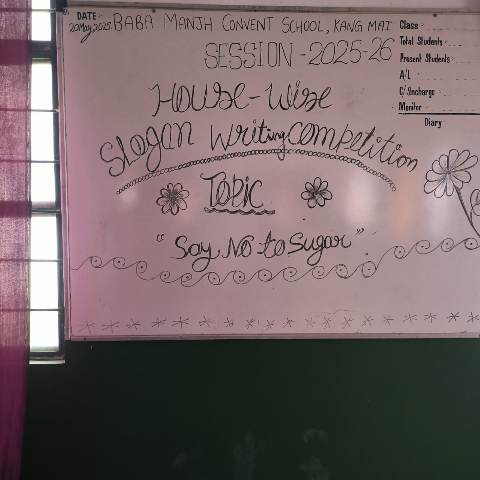 DATE:-
20May,2025. BABA MANJH CONVENT SCHOOL, KANG MAI
SESSION - 2025-26
HOUSE-Wise
Slogan Writing Competition
Topic
"Say No to Sugar".
Class -
Total Students -
Present Students -
A/L
C/Incharge -
Monitor -
Diary